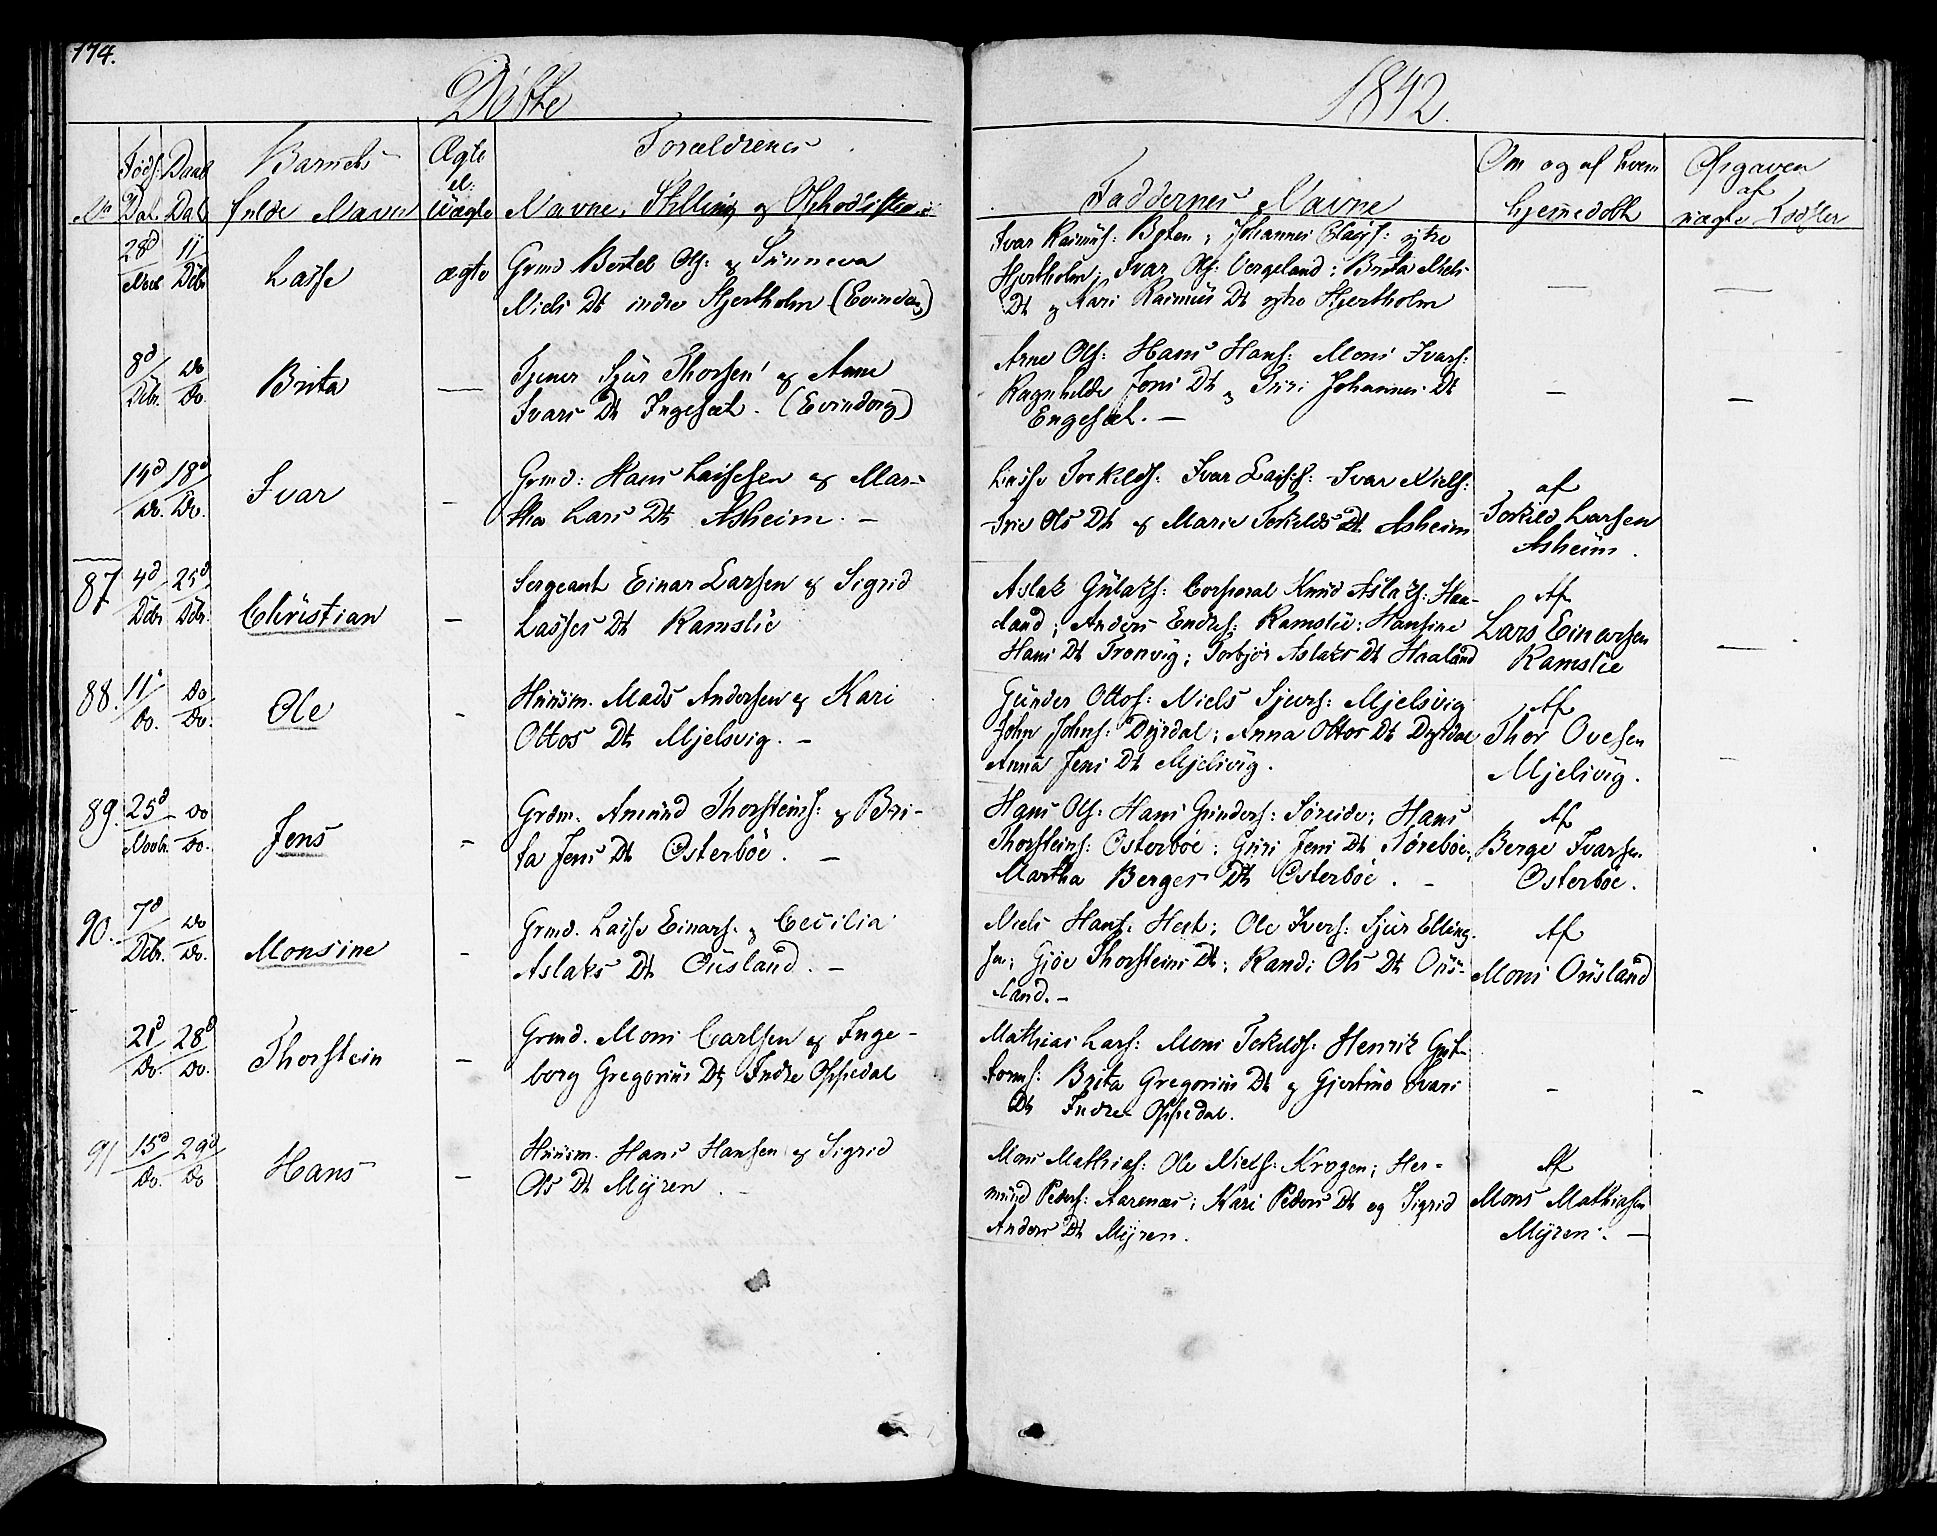 174.
Döbte
1842.
No
Föds: Dat.
Daab Dat
Barnets fulde Navn
Ægte el: Uægte
Forældrenes Navne, Stilling og Opholdssted
Faddernes Navne
Om og af hvem hjemmedöbt
af uægte
28d Novbr
11 Debr
Lasse
ægte
Grmd Bertel Ols: og Sünneva
Niels Dt indre Hjertholm (Evindvig)
Ivar Rasmüs: Böten; Johannes Olaiss: ytre
Hjertholm; Ivar Ols: Vergeland; Brita Niels
Dt og Kari Rasmüs Dt ytre Hjertholm
—
—
8d Debr.
do do.
Brita
—
Tjener Sjur Thorsen og Anne
Ivars Dt Ingesæt. (Evindvig)
Arne Ols: Hans Hans: Mons Ivars:
Ragnhilde Jons Dt og Siri Johannes Dt
Engesæt. —
—
—
14d do.
18d do.
Ivar
—
Grmd: Hans Lassesen og Mar-
tha Lars Dt Asheim. —
Lasse Torkilds: Ivar Lasses: Ivar Niels:
Ols Dt og Marie Torkilds Dt Asheim
af
Torkild Larsen
Asheim.
87
4d Debr
25d Debr.
Christian
—
Sergeant Einar Larsen og Sigrid
Lasses Dt Ramslie
Aslak Gülaks: Corporal Knud Aslaks: Haa-
land; Anders Endres: Ramslie; Hansine
Hans Dt Tronvig; Torbjör Aslaks Dt Haaland
Af
Lars Einersen
Ramslie
—
88.
11 do.
do do.
Ole
-
Hüüsm. Mads Andersen og Kari
Ottos Dt Mjelsvig. —
Günder Ottos: Niels Sjurs: Mjelsvig
John Johns: Dyrdal; Anna Ottos Dt Dyrdal
Anna Jens Dt Mjelsvig.
Af
Thor Ovesen
Mjelsvig.
-
89.
25d Novbr.
do do.
Jens
-
Grdm. Amünd Thorsteins: og Bri-
ta Jens Dt Osterböe. —
Hans Ols: Hans Günders: Söreide; Hans
Thorsteins: Osterböe; Guri Jens Dt Nöreböe;
Martha Berges Dt Osterböe. —
Af
Berge Ivarsen
Osterböe.
90.
7d Debr.
do do.
Monsine
-
Grmd. Lasse Einars. og Cecilia
Aslaks Dt Oüsland. —
Niels Hans: Hest; Ole Ivers: Sjur Elling-
sen; Gjöe Thorsteins Dt; Randi Ols Dt Oüs-
land. —
Af
Mons Oüsland
21d do.
28d do.
Thorstein
—
Grmd. Mons Carlsen og Inge-
borg Gregorius Dt Indre Oppedal
Mathias Lars: Mons Torkilds: Henrik Gut-
torms: Brita Gregorius Dt og Gjertine Ivars
Dt Indre Oppedal.
-
-
91
15d do.
29d do
Hans
—
Hüüsm. Hans Hansen og Sigrid
Ols Dt Myren. -
Mons Mathias: Ole Niels: Krogen; Her-
münd Peders: Aarenæs; Kari Peders Dt og Sigrid
Anders Dt Myren.
Af
Mons Mathiasen
Myren. —